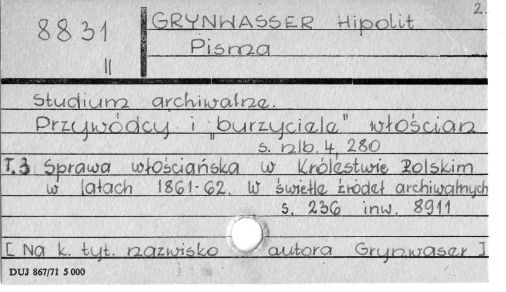 2.
8831 GRYNWASSER Hipolit
II Pisma
Studium archiwalne.
Przywódcy i "burzyciele" włościan
s. nlb. 4, 280
T.3 Sprawa włościańska w Królestwie Polskim
w latach 1861-62. W świetle źródeł archiwalnych
s. 236 inw. 8911
[Na k. tyt. nazwisko autora Grynwaser]
DUJ 867/71 5 000